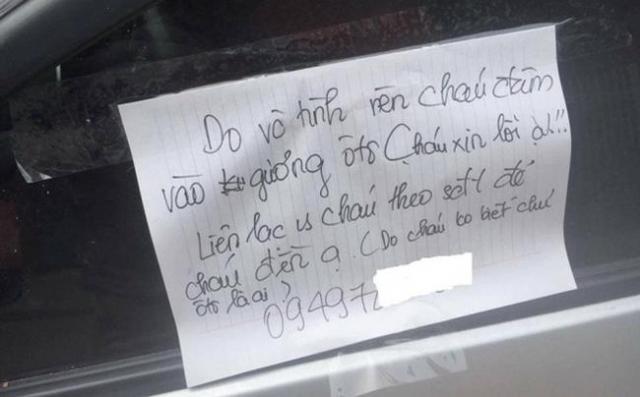 Do vô tình nên cháu đâm
vào gương ôtô Cháu xin lỗi ạ!!
Liên lạc vs cháu theo số đt để
cháu đền ạ. (Do cháu ko biết chủ
ôtô là ai?
09497